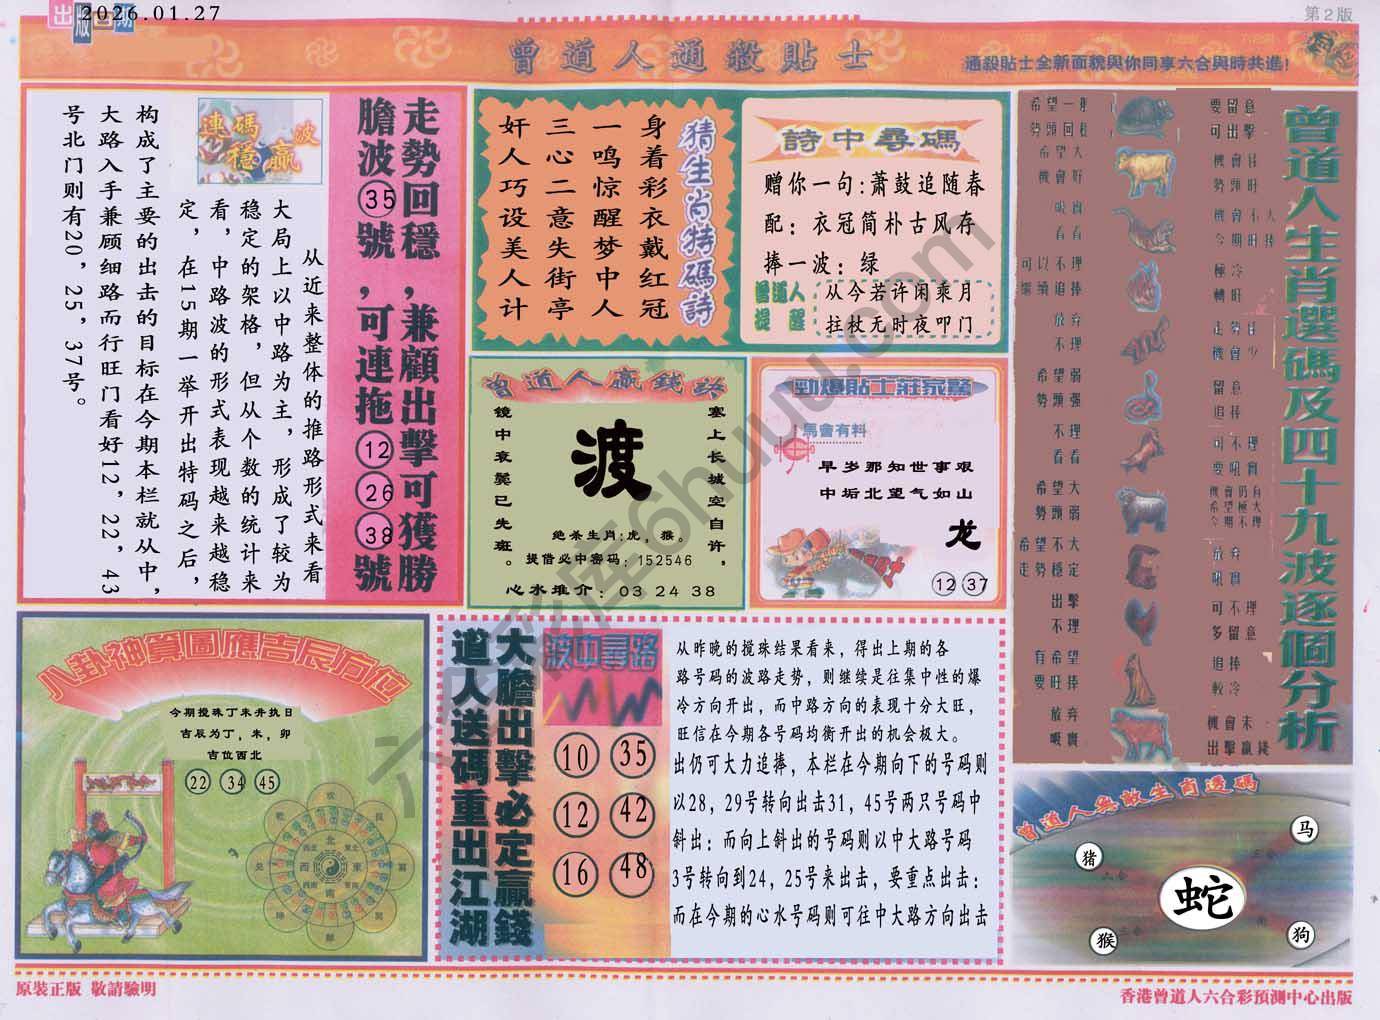 2026.01.27
第2版
曾道人通殺貼士
通殺貼士全新面貌與你同享六合與時共進!
走勢回穩,兼顧出擊可獲勝
膽波35號,可連拖12 26 38號
連碼穩赢波
从近来整体的推路形式来看
大局上以中路为主，形成了较为
稳定的架格，但从个数的统计来
看，中路波的形式表现越来越稳
定，在15期一举开出特码之后，
构成了主要的出击的目标在今期本栏就从中，
大路入手兼顾细路而行旺门看好12，22，43
号北门则有20，25，37号。
猜生肖特碼詩
身着彩衣戴红冠
一鸣惊醒梦中人
三心二意失街亭
奸人巧设美人计
詩中尋碼
赠你一句:萧鼓追随春
配：衣冠简朴古风存
捧一波：绿
曾道人
提 醒
从今若许闲乘月
拄杖无时夜叩门
曾道人赢錢訣
塞上长城空自许，
渡
镜中衰鬓已先斑。
绝杀生肖:虎，猴。
提借必中密码：152546
心水推介：03 24 38
勁爆貼士莊家驚
馬會有料
早岁那知世事艰
中垢北望气如山
龙
12 37
曾道人生肖選碼及四十九波逐個分析
希望一般
勢頭回穩
要留意
可出擊
希望大
機會好
機會佳
勢頭旺
吸實
看看
機會不大
今期旺捧
可以不理
繼續追捧
極冷
轉旺
放弃
不理
走勢佳
機會少
希望弱
勢頭强
留意
追捧
不理
看看
可不理
要吼實
希望大
勢頭弱
機會仍有
希望極大
今期不
希望不大
走勢穩定
放弃
吼實
出擊
不理
可不理
多留意
有希望
要旺捧
追捧
較冷
放弃
吸實
機會未
出擊贏錢
八卦神算圖應吉辰方位
今期搅珠丁未并执日
吉辰为丁，未，卯
吉位西北
22 34 45
北
西
東
南
大膽出擊必定贏錢
道人送碼重出江湖
波中尋路
10 35
12 42
16 48
从昨晚的搅珠结果看来，得出上期的各
路号码的波路走势，则继续是往集中性的爆
冷方向开出，而中路方向的表现十分大旺，
旺信在今期各号码均衡开出的机会极大。
出仍可大力追捧，本栏在今期向下的号码则
以28，29号转向出击31，45号两只号码中
斜出：而向上斜出的号码则以中大路号码
3号转向到24，25号来出击，要重点出击：
而在今期的心水号码则可往中大路方向出击
曾道人無敵生肖透碼
马
猪
六合
三合
蛇
猴
狗
原裝正版 敬請驗明
香港曾道人六合彩預測中心出版
六合彩库6huuu.com